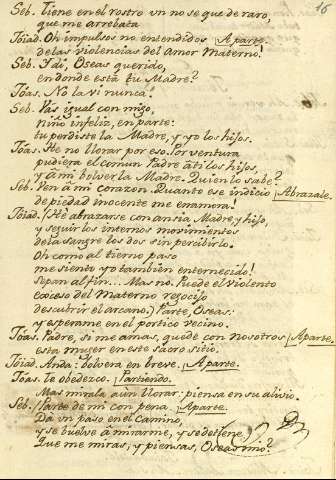 16
Seb. Tiene en el rostro un no se que de raro,
que me arrebata
Ioiad. Oh impulsos no entendidos Aparte.
de las violencias del Amor Materno!
Seb. Y di, Oseas querido,
en donde està tu Madre?
Ioas. No la vi nunca.
Seb. Vàs igual con migo,
niño infeliz, en parte:
tu perdiste la Madre, y yo los hijos.
Ioas. He no llorar por eso. Por ventura
pudiera el comun Padre à ti los hijos,
y à mi bolver la Madre. Quien lo sabe?
Seb. Ven à mi corazon. Quanto ese indicio Abrazale.
de piedad inocente me enamora!
Ioiad. (He abrazarse con ansia Madre, y hijo,
y seguir los internos movimientos
de la sangre los dos sin percibirlo.
Oh como al tierno paso
me siento yo tambien enternecido!
Sepan al fin... Mas no. Puede el violento
exceso del Materno regocijo
descubrir el arcano.) Parte, Oseas:
y esperame en el portico vecino.
Ioas. Padre, si me amas, quede con nosotros Aparte.
esta muger en este sacro sitio.
Ioiad. Anda: bolverà en breve. Aparte.
Ioas. Te obedezco. Partiendo.
Mas mirala aun llorar: piensa en su alivio.
Seb. Parte de mi con pena. Aparte.
Dà un paso en el camino,
y se buelve à mirarme, y se detiene.
Que me miras, y piensas, Oseas mio?